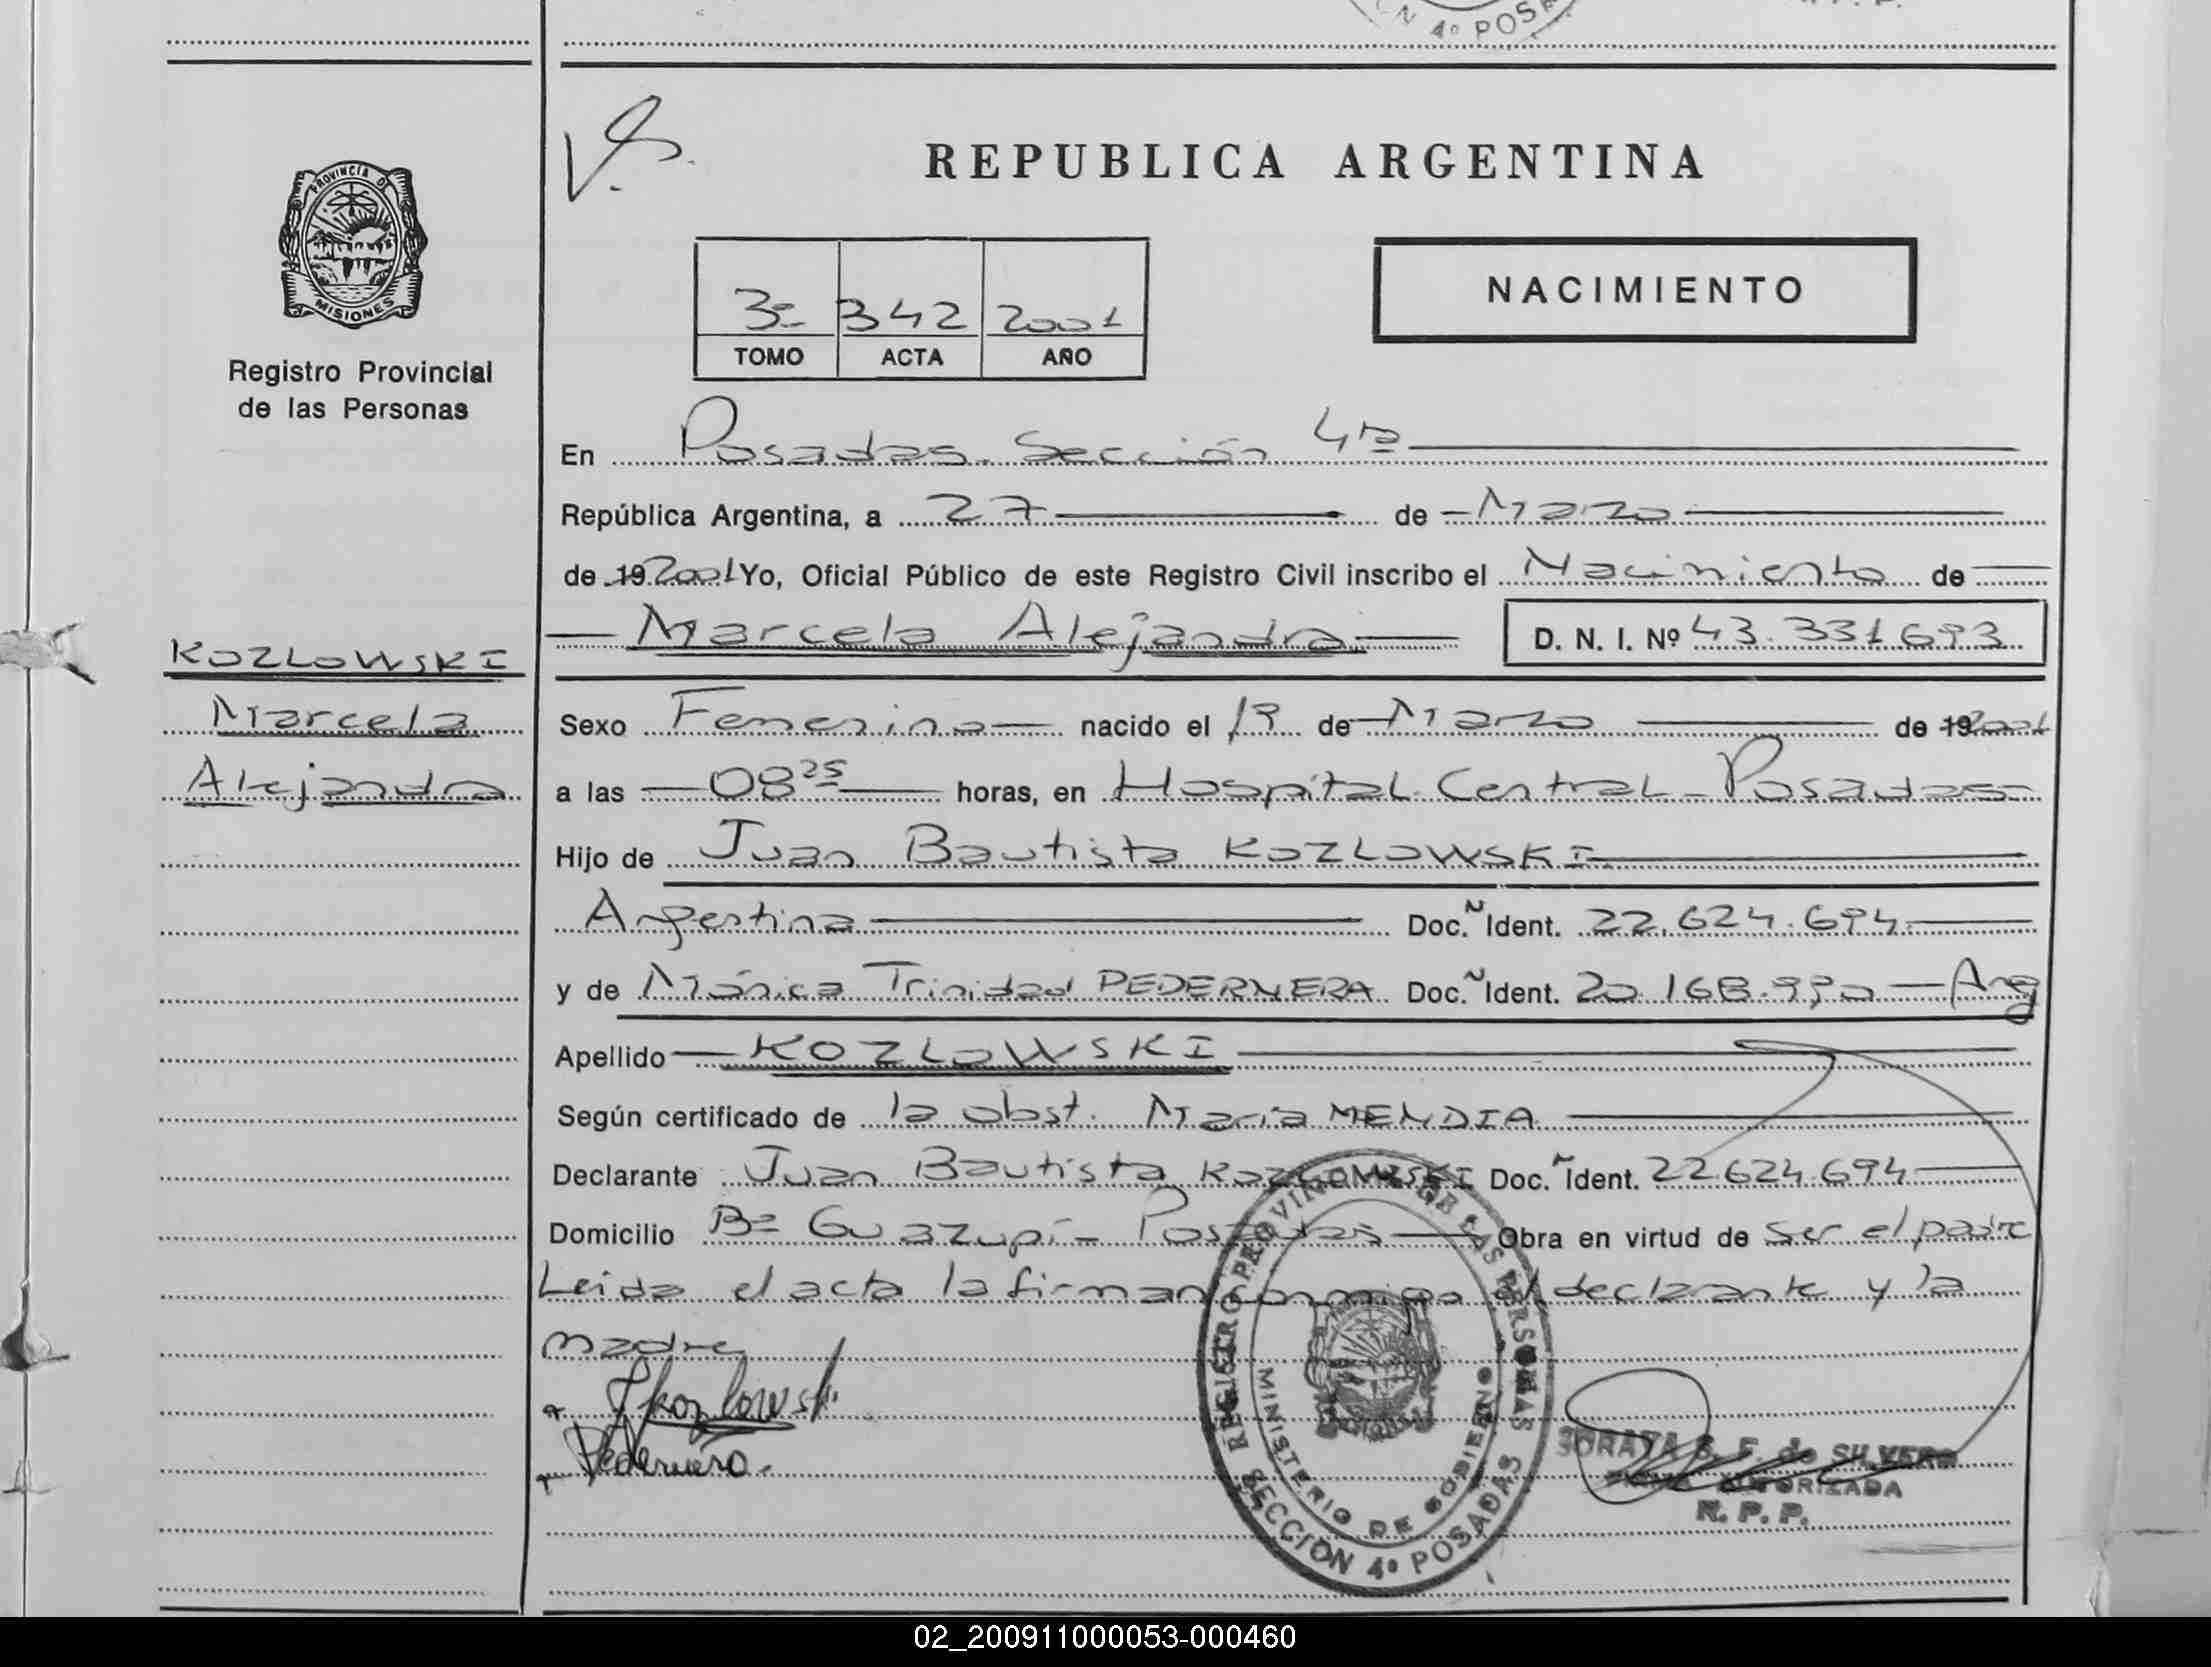 N 4º POSA
REPUBLICA ARGENTINA
PROVINCIA DE
MISIONES
3º 342 2001
TOMO ACTA AÑO
NACIMIENTO
Registro Provincial
de las Personas
En Posadas. Sección 4ta
República Argentina, a 27 de Marzo
de 19 2001 Yo, Oficial Público de este Registro Civil inscribo el Nacimiento de
Marcela Alejandra D. N. I. Nº 43.331.693
KOZLOWSKI
Marcela
Alejandra
Sexo Femenino nacido el 19 de Marzo de 19 2001
a las 08 25 horas, en Hospital Central - Posadas
Hijo de Juan Bautista KOZLOWSKI
Argentina Doc. N Ident. 22.624.694
y de Mónica Trinidad PEDERNERA Doc. N Ident. 20.168.990 - Arg
Apellido KOZLOWSKI
Según certificado de la obst. María MENDIA
Declarante Juan Bautista KOZLOWSKI Doc. Ident. 22624.694
Domicilio Bº Guazupí - Posadas Obra en virtud de ser el padre
Leida el acta la firman conmigo el declarante y la
madre
JKozlowski
Pedernera.
REGISTRO PROVINCIAL DE LAS PERSONAS
MINISTERIO DE GOBIERNO
SECCION 4º POSADAS
SORAYA S. F. de SILVERO
FIRMA AUTORIZADA
R. P. P.
02_200911000053-000460